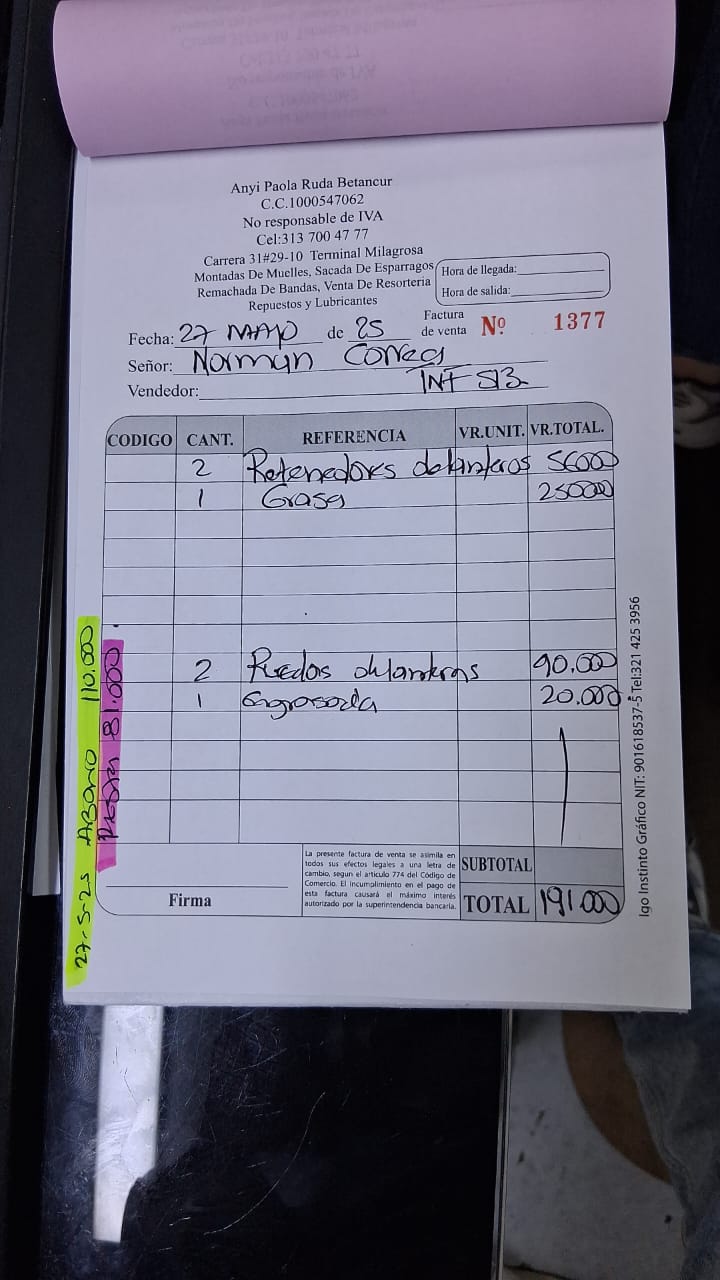 Anyi Paola Ruda Betancur
C.C.1000547062
No responsable de IVA
Cel:313 700 47 77
Carrera 31#29-10 Terminal Milagrosa
Montadas De Muelles, Sacada De Esparragos
Remachada De Bandas, Venta De Resorteria
Repuestos y Lubricantes
Hora de llegada:
Hora de salida:
Factura de venta Nº 1377
Fecha: 27 MAYO de 25
Señor: Norman Correa
TNF 513
Vendedor:
CODIGO CANT. REFERENCIA VR.UNIT. VR.TOTAL.
2 Retenedores delanteros 56000
1 Grasa 25000
2 Ruedas delanteras 90.000
1 Engrasada 20.000
La presente factura de venta se asimila en
todos sus efectos legales a una letra de
cambio, segun el articulo 774 del Código de
Comercio. El incumplimiento en el pago de
esta factura causará el máximo interés
autorizado por la superintendencia bancaria.
SUBTOTAL
Firma
TOTAL 191.000
27-5-25 ABONO 110.000
RESTA 81.000
Igo Instinto Gráfico NIT: 901618537-5 Tel:321 425 3956